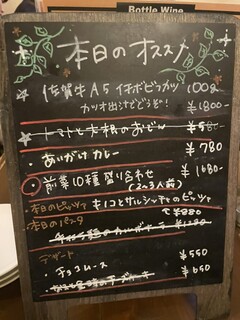 Bottle Wine
本日のオススメ
佐賀牛A5 イチボビフカツ 100g
カツオ出汁でどうぞ! ¥1800-
トマトと大根のおでん ¥580-
・あいがけカレー ¥780
・前菜10種盛り合わせ ¥1680-
(2~3人前)
本日のピッツァ キノコとサルシッチャのピッツァ
・本日のパスタ ¥880
カルボナーラ ¥1280
デザート
・チョコムース ¥550
¥650